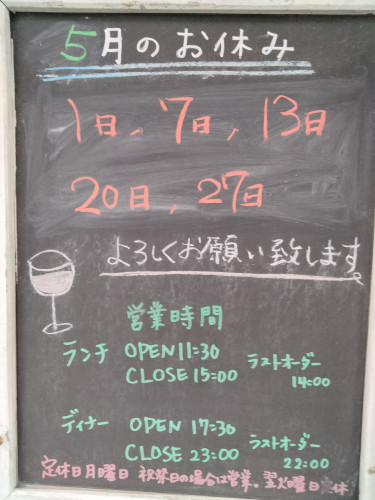 5月のお休み
1日、7日、13日
20日、27日
よろしくお願い致します。
営業時間
ランチ OPEN 11:30
CLOSE 15:00 ラストオーダー
14:00
ディナー OPEN 17:30
CLOSE 23:00 ラストオーダー
22:00
定休日月曜日 祝祭日の場合は営業。翌火曜日定休